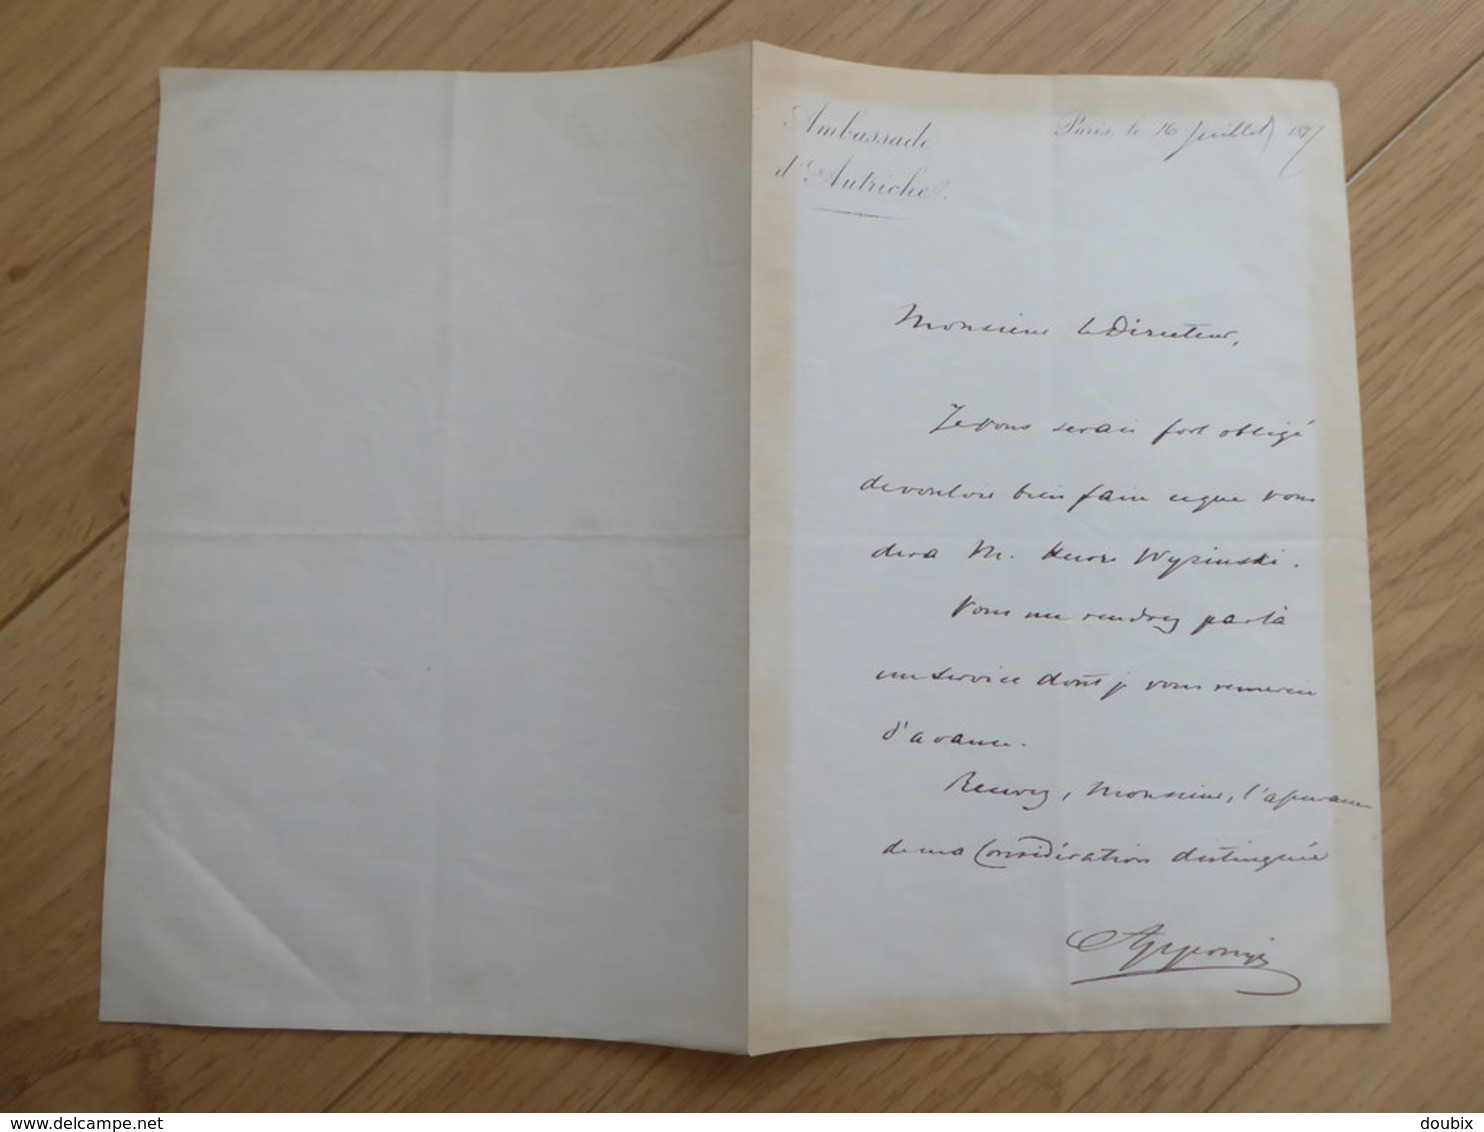 Ambassade
d'Autriche.
Paris, le 16 Juillet 1877
Monsieur le Directeur,
Je vous serais fort obligé
de vouloir bien faire ce que vous
dira M. Wyzinski.
Vous me rendrez par là
un service dont je vous remercie
d'avance.
Recevez, Monsieur, l'assurance
de ma Considération distinguée
Apponyi
© delcampe.net
doubix